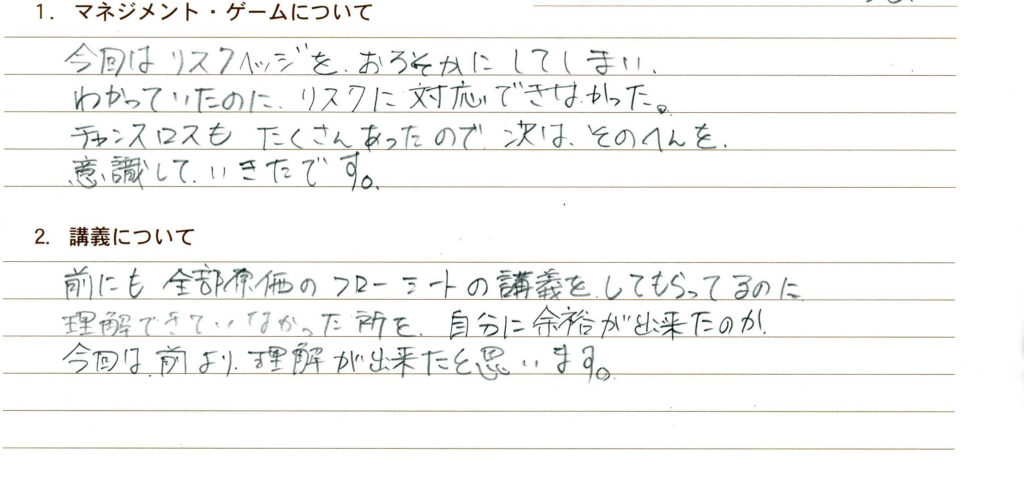 1. マネジメント・ゲームについて
今回はリスクヘッジを、おろそかにしてしまい、
わかっていたのに、リスクに対応できなかった。
チャンスロスも たくさんあったので、次は、そのへんを、
意識して、いきたです。
2. 講義について
前にも 全部原価のフローシートの講義を、してもらってるのに
理解できていなかった所を、自分に余裕が出来たのか、
今回は、前より、理解が出来たと思います。